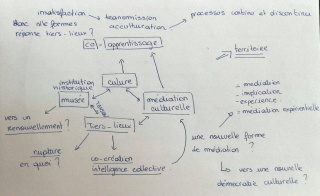 insatisfaction → transmission
acculturation
→ processus continu et discontinu
nlle formes
réponse tiers-lieux ?
co apprentissage
territoire
culture
institution
historique
musée
médiation
culturelle
- médiation
- implication
- expérience
= médiation expérientielle
tiers-lieux
vers un
renouvellement ?
rupture
en quoi ?
co-création
intelligence collective
une nouvelle forme
de médiation ?
↳ vers une nouvelle
démocratie culturelle ?